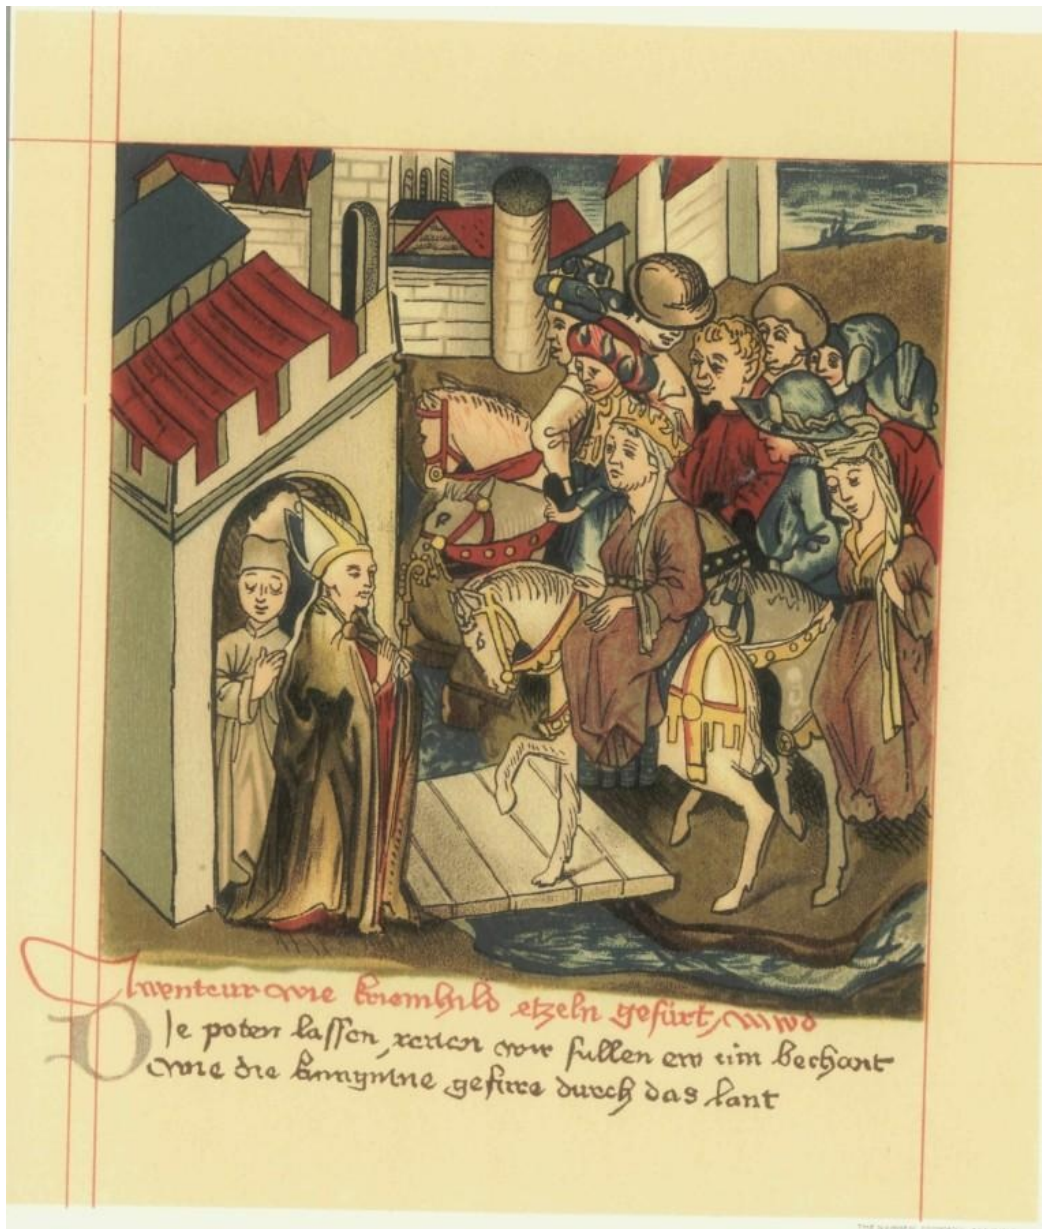 Awenteur wie kriemhild etzeln gefürt wird
Die poten lassen reiten wir sullen ew tün bechant
wie die kunigine gefüre durch das lant